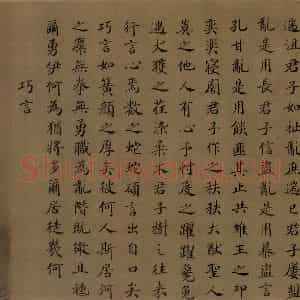 遄沮君子如祉亂庶遄已君子屢盟
亂是用長君子信盜亂是用暴盜言
孔甘亂是用餤匪其止共維王之邛
奕奕寢廟君子作之秩秩大猷聖人
莫之他人有心予忖度之躍躍毚兔
遇犬獲之荏染柔木君子樹之往來
行言心焉數之蛇蛇碩言出自口矣
巧言如簧顏之厚矣彼何人斯居河
之麋無拳無勇職為亂階既微且尰
爾勇伊何為猶將多爾居徒幾何
巧言